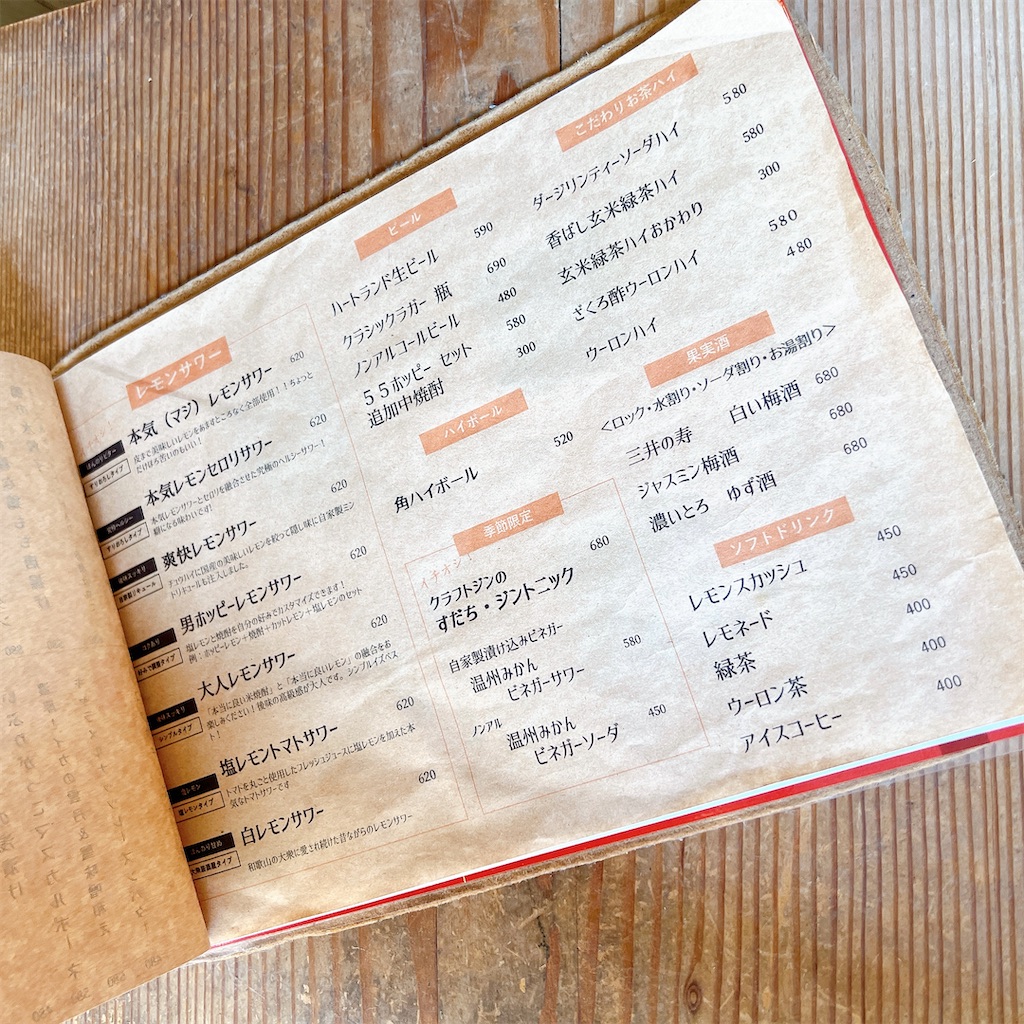 レモンサワー
本気（マジ）レモンサワー 620
皮まで美味しいレモンをあますところなく全部使用！！ちょっと
だけほろ苦いのもいい！
ほんのりビター
すりおろしタイプ
本気レモンセロリサワー 620
本気レモンサワーとセロリを融合させた究極のヘルシーサワー！
癖になる味わいです！
すりおろしタイプ
爽快レモンサワー 620
チュウハイに国産の美味しいレモンを絞って隠し味に自家製ミン
トリキュールも注入しました。
男ホッピーレモンサワー 620
塩レモンと焼酎を自分の好みでカスタマイズできます！
例：ホッピーレモン＋焼酎＋カットレモン＋塩レモンのセット
好みで調整タイプ
大人レモンサワー 620
「本当に良い米焼酎」と「本当に良いレモン」の融合をお
楽しみください！後味の高級感が大人です。シンプルイズベス
ト！
後味スッキリ
シンプルタイプ
塩レモントマトサワー 620
トマトを丸ごと使用したフレッシュジュースに塩レモンを加えた本
気なトマトサワーです
塩レモンタイプ
白レモンサワー 620
和歌山の大衆に愛され続けた昔ながらのレモンサワー
大衆居酒屋タイプ
ビール
ハートランド生ビール 590
クラシックラガー 瓶 690
ノンアルコールビール 480
５５ホッピー セット 580
追加中焼酎 300
ハイボール
角ハイボール 520
季節限定
イチオシ！
クラフトジンの 680
すだち・ジントニック
自家製漬け込みビネガー
温州みかん 580
ビネガーサワー
ノンアル
温州みかん 450
ビネガーソーダ
こだわりお茶ハイ
ダージリンティーソーダハイ 580
香ばし玄米緑茶ハイ 580
玄米緑茶ハイおかわり 300
ざくろ酢ウーロンハイ 580
ウーロンハイ 480
果実酒
＜ロック・水割り・ソーダ割り・お湯割り＞
三井の寿 白い梅酒 680
ジャスミン梅酒 680
濃いとろ ゆず酒 680
ソフトドリンク
レモンスカッシュ 450
レモネード 450
緑茶 400
ウーロン茶 400
アイスコーヒー 400